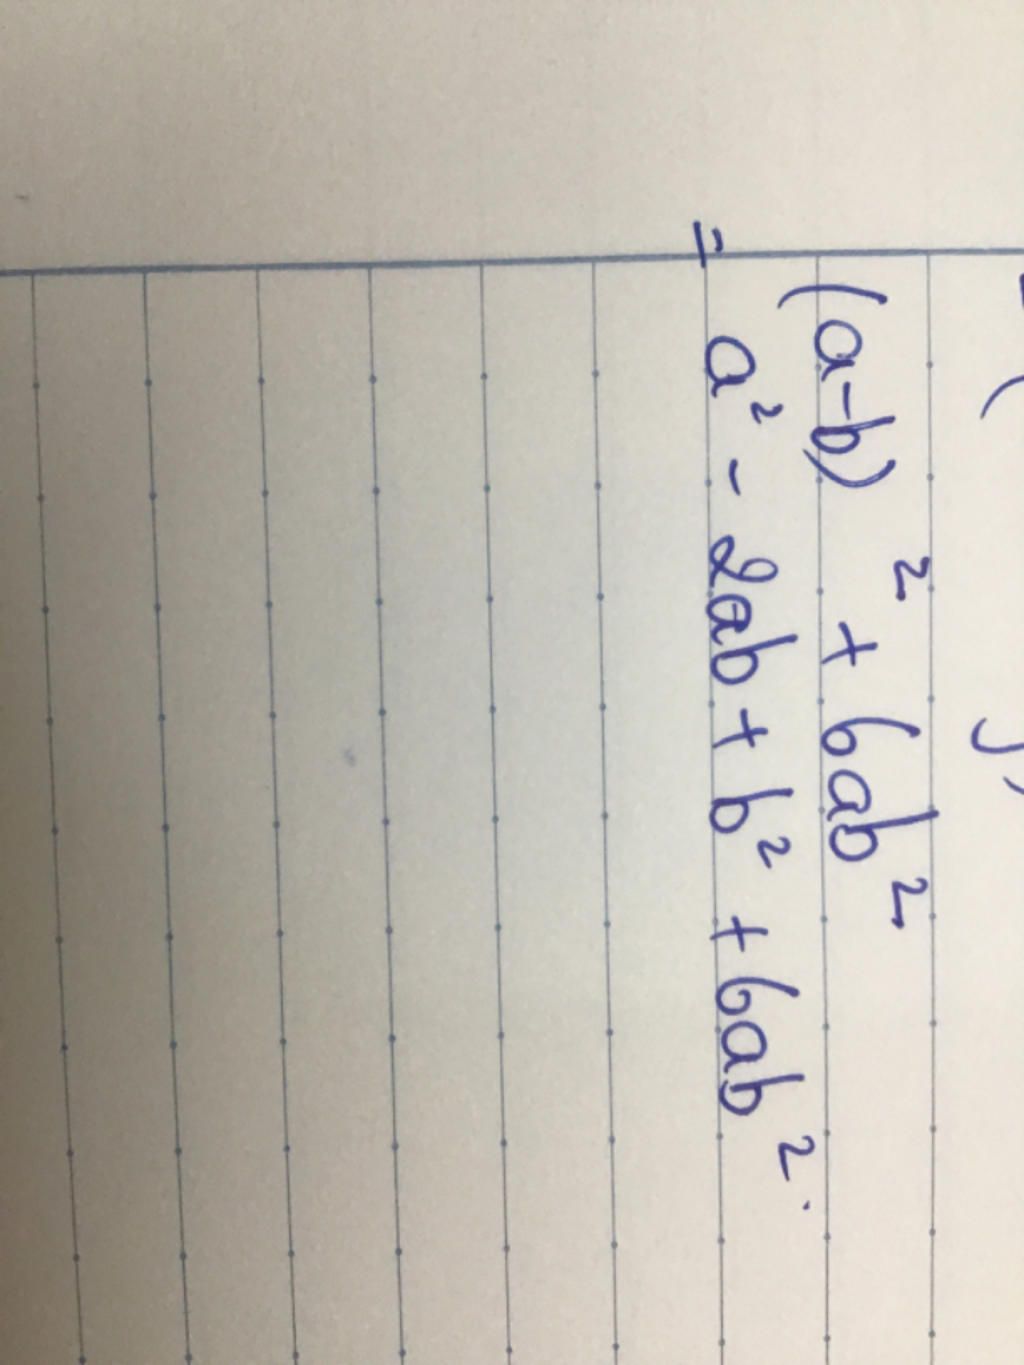 (a-b)² + 6ab²
= a² - 2ab + b² + 6ab².